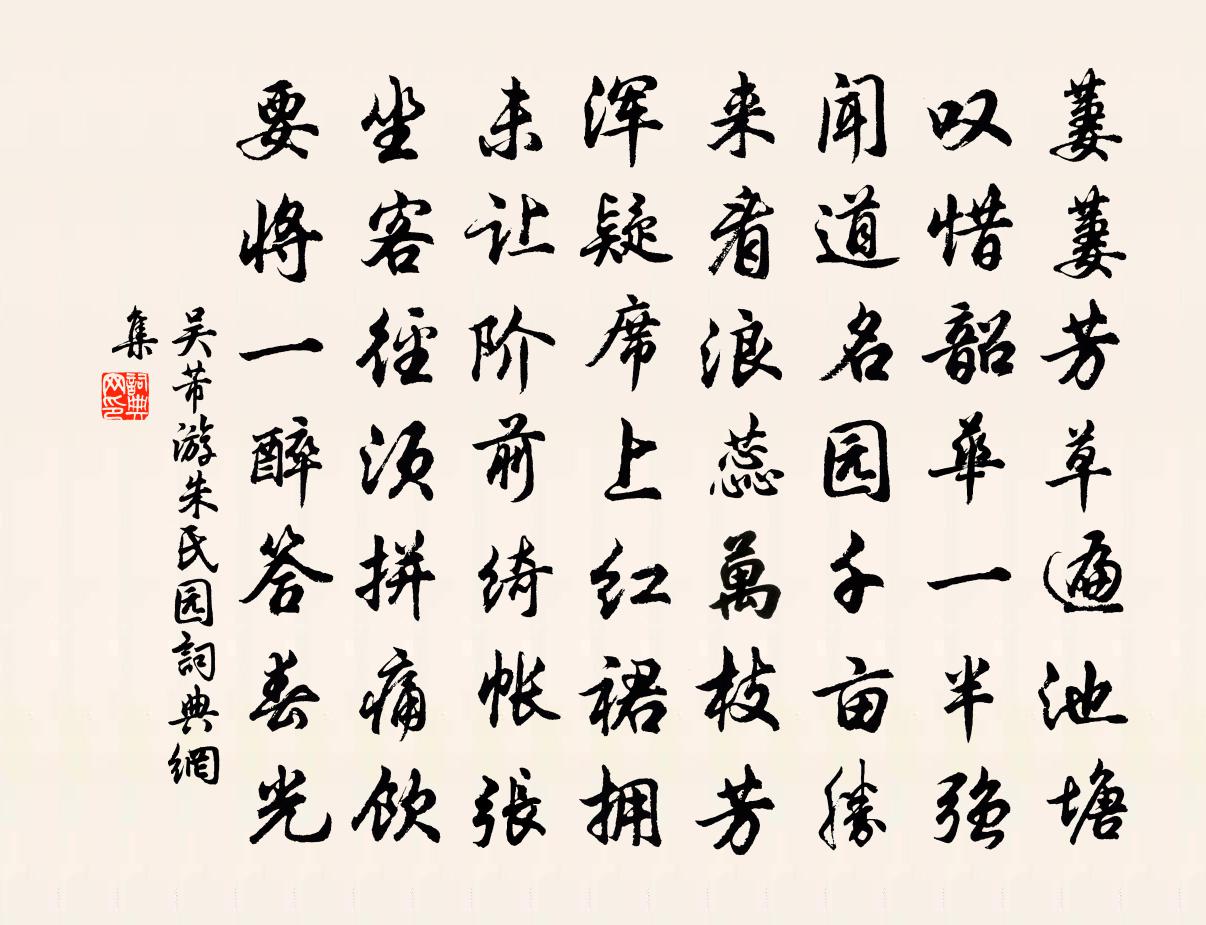 萋萋芳草遍池塘
叹惜韶華一半强
闻道名园千亩胜
来看浪蕊萬枝芳
浑疑席上红裙拥
未让阶前绮帐張
坐客径须拼痛饮
要将一醉答春光
吴芾游朱氏园詞典網
集
詞典网印